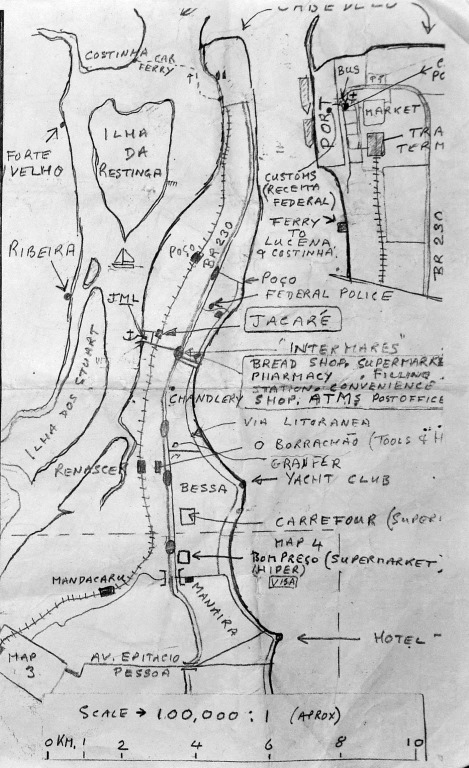 CABEDELO
COSTINHA
CAR
FERRY
BUS
MARKET
PORT
TRA
TERM
ILHA
DA
RESTINGA
FORTE
VELHO
CUSTOMS
(RECEITA
FEDERAL)
FERRY
TO
LUCENA
& COSTINHA
BR 230
BR 230
POÇO
RIBEIRA
POÇO
FEDERAL POLICE
JML
JACARÉ
"INTERMARES"
BREAD SHOP, SUPERMARKE
PHARMACY, FILLING
STATION, CONVENIENCE
SHOP, ATMs POST OFFICE
CHANDLERY
VIA LITORANEA
ILHA DOS STUART
O BORRACHÃO (TOOLS & H
GRANFER
RENASCER
YACHT CLUB
BESSA
CARREFOUR (SUPER
MAP 4
BOMPREÇO (SUPERMARKET
(HIPER)
VISA
MANDACARU
MANAIRA
HOTEL
MAP
3
AV. EPITACIO
PESSOA
SCALE → 100,000 : 1 (APROX)
0 KM. 1 2 4 6 8 10